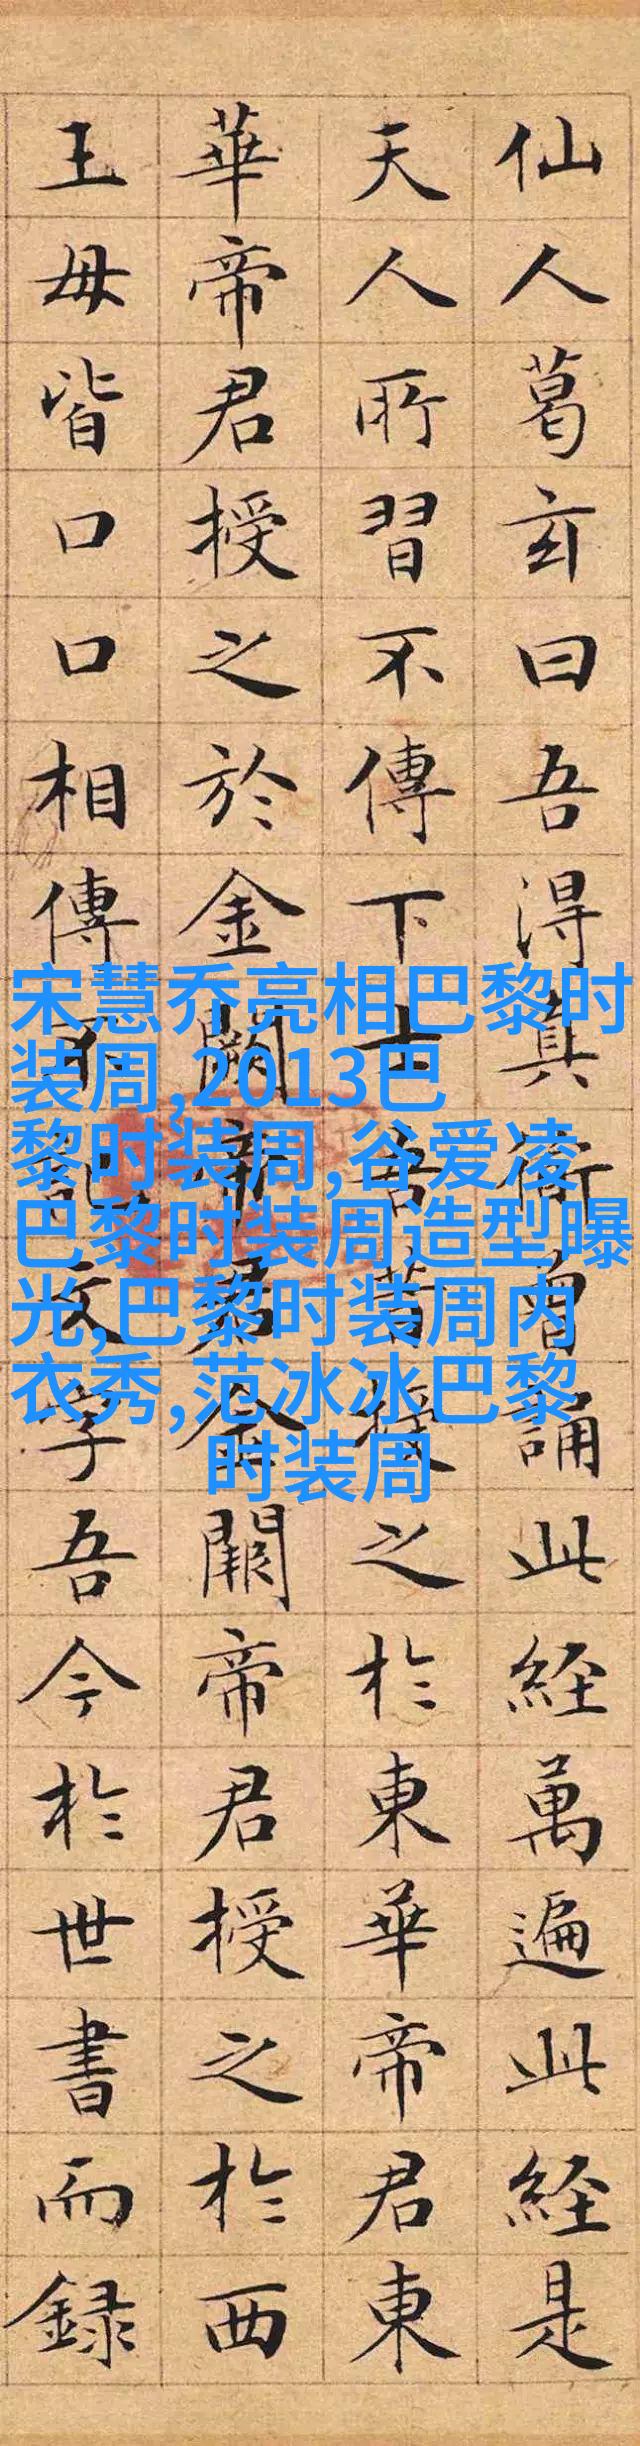 仙人葛玄曰吾淂真衜曽誦此経萬遍此経是
天人所習不傳下士吾昔授之於東華帝君東
華帝君授之於金闕帝君金闕帝君授之於西
王母皆口口相傳不記文字吾今於世書而録
宋慧乔亮相巴黎时
装周,2013巴
黎时装周,谷爱凌
巴黎时装周造型曝
光,巴黎时装周内
衣秀,范冰冰巴黎
时装周